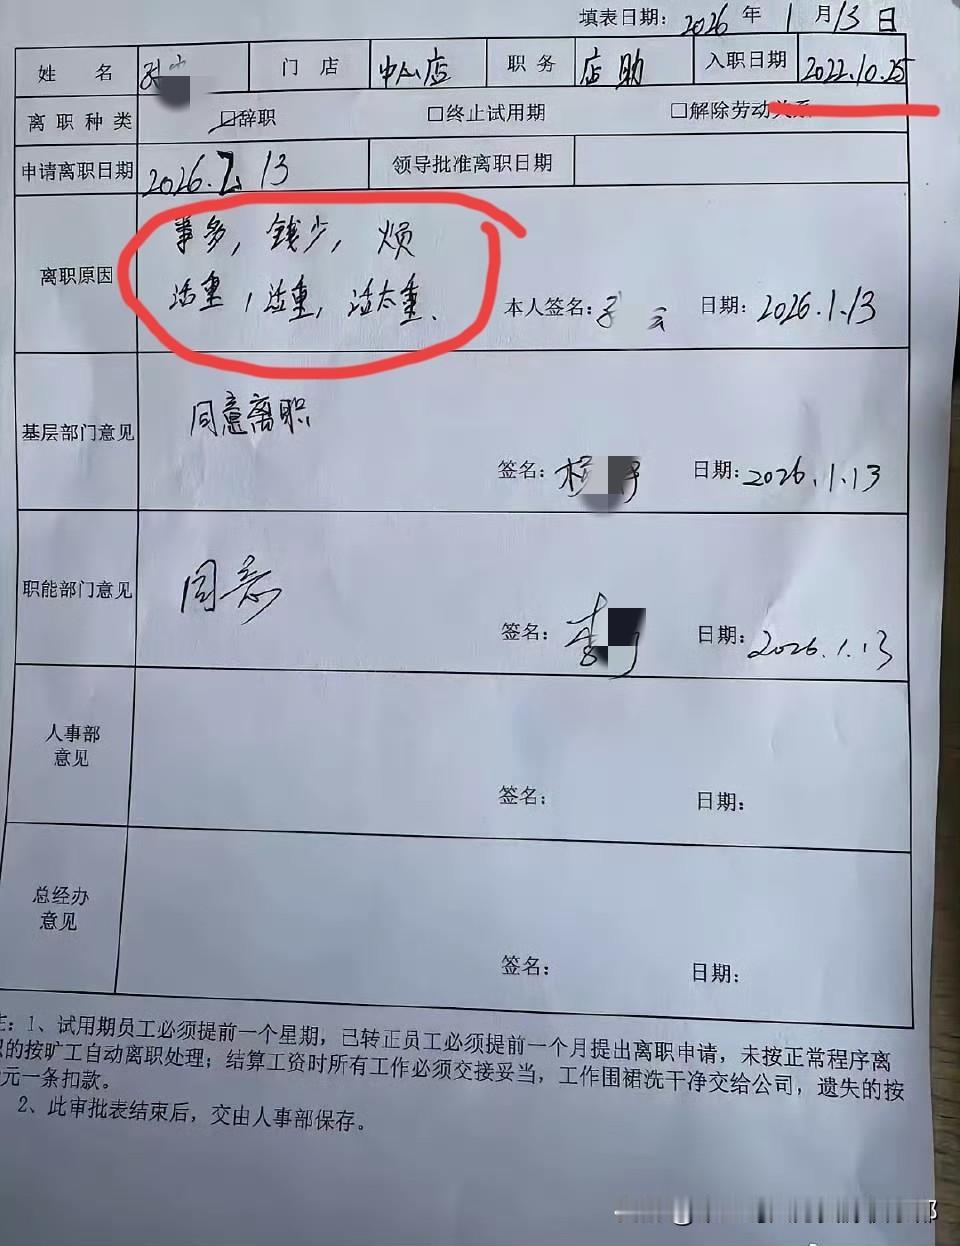 填表日期：2026 年 1 月 13 日
姓 名 孙 门 店 中心店 职 务 店助 入职日期 2022.10.25
离职种类 ☐辞职 ☐终止试用期 ☐解除劳动关系
申请离职日期 2026.2.13 领导批准离职日期
事多，钱少，烦
离职原因 活重，活重，活太重、
本人签名： 云 日期：2026.1.13
同意离职
基层部门意见
签名：杨 日期：2026.1.13
同意
职能部门意见
签名：李 日期：2026.1.13
人事部
意见
签名： 日期：
总经办
意见
签名： 日期：
：1、试用期员工必须提前一个星期，已转正员工必须提前一个月提出离职申请，未按正常程序离
的按旷工自动离职处理；结算工资时所有工作必须交接妥当，工作围裙洗干净交给公司，遗失的按
元一条扣款。
2、此审批表结束后，交由人事部保存。